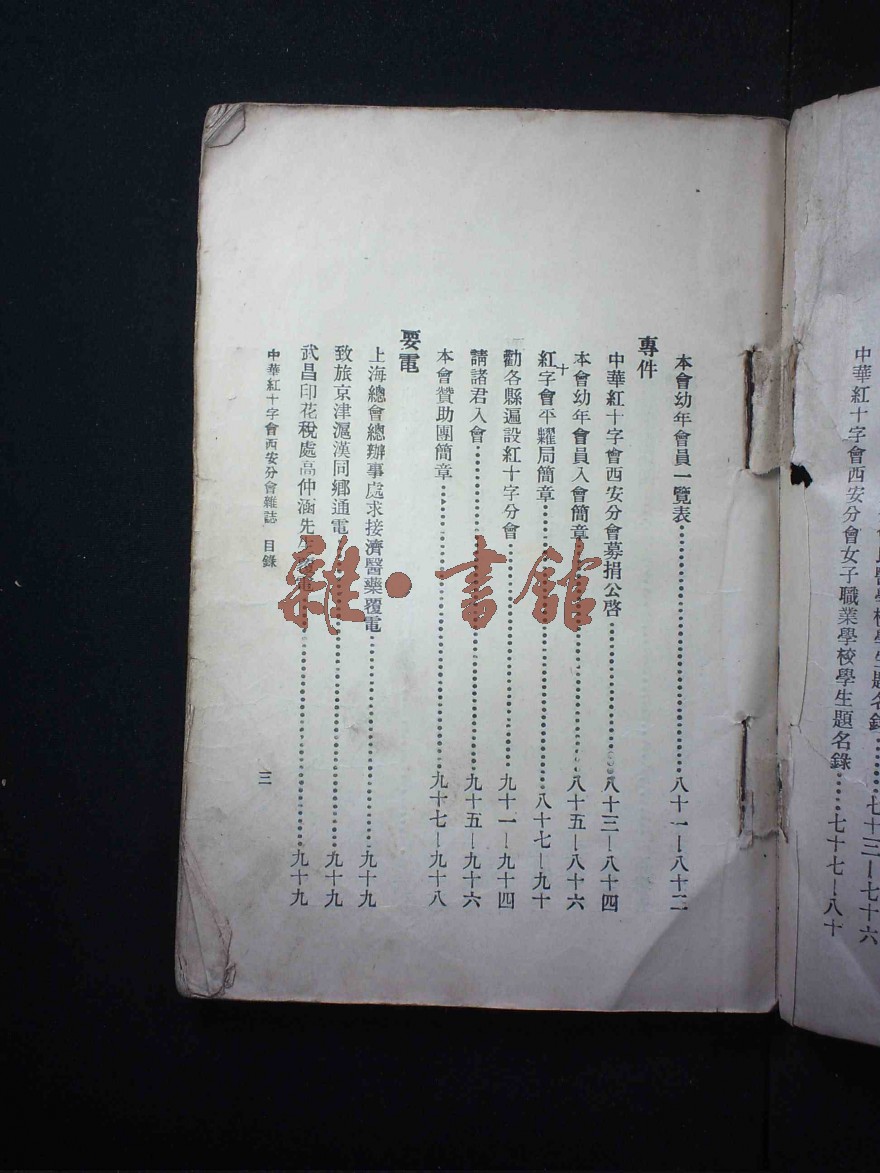 民醫學校學生題名錄……七十三—七十六
中華紅十字會西安分會女子職業學校學生題名錄……七十七—八十
本會幼年會員一覽表……八十一—八十二
專件
中華紅十字會西安分會募捐公啓……八十三—八十四
本會幼年會員入會簡章……八十五—八十六
紅十字會平糶局簡章……八十七—九十
勸各縣遍設紅十字分會……九十一—九十四
請諸君入會……九十五—九十六
本會贊助團簡章……九十七—九十八
要電
上海總會總辦事處求接濟醫藥覆電……九十九
致旅京津滬漢同鄉通電……九十九
武昌印花稅處高仲涵先生覆電……九十九
中華紅十字會西安分會雜誌 目錄
三
雜·書館